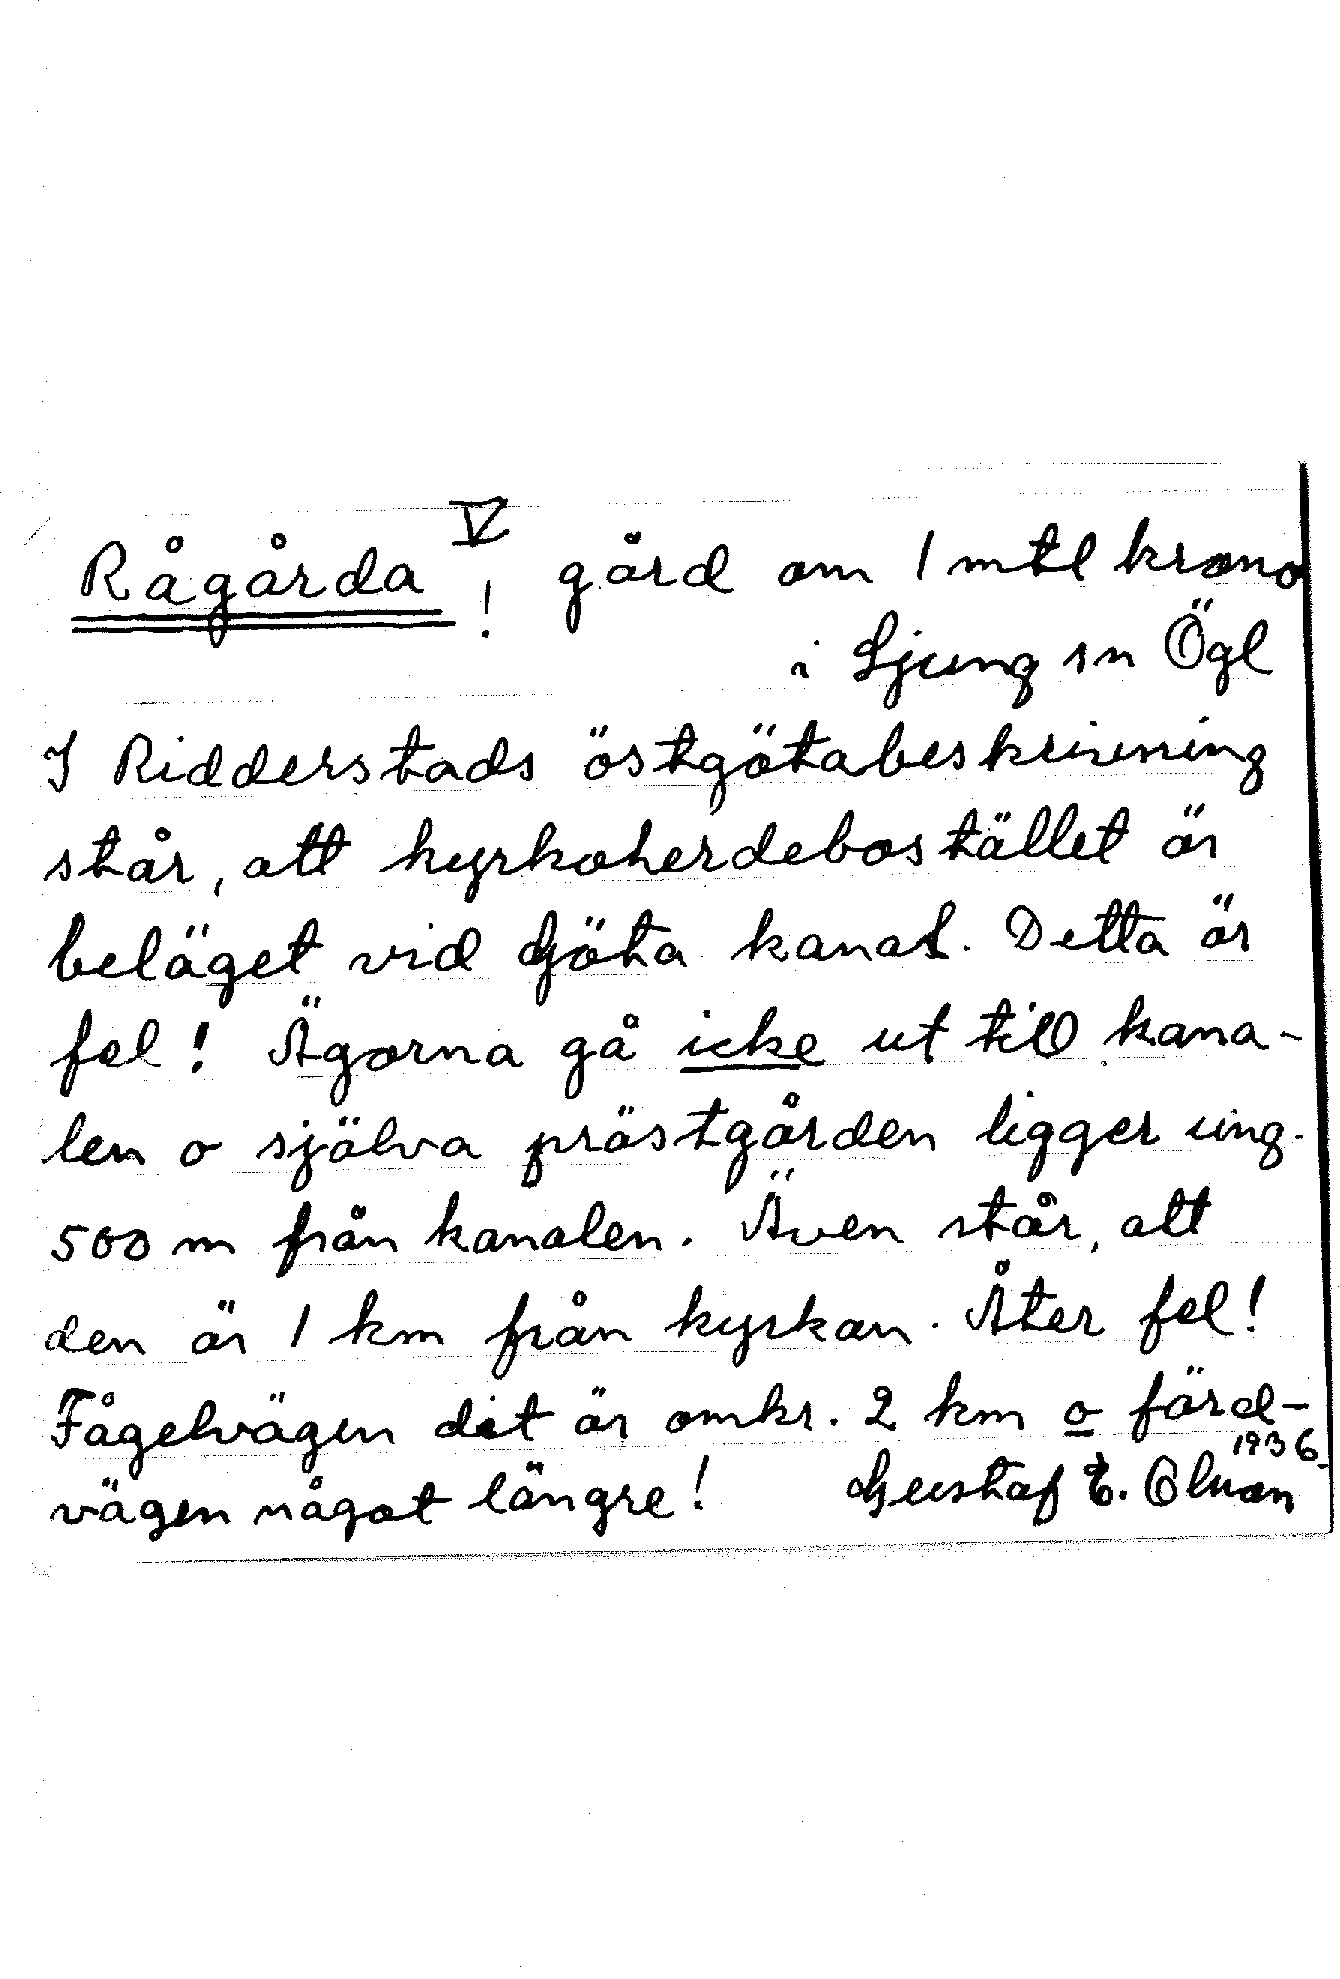 Rågårda V ! gård om 1 mtl krono
i Ljung sn Ögl
I Ridderstads östgötabeskrivning
står, att kyrkoherdebostället är
beläget vid Göta kanal. Detta är
fel! Ägorna gå icke ut till kana-
len o själva prästgården ligger ung.
500 m från kanalen. Även står, att
den är 1 km från kyrkan. Åter fel!
Fågelvägen dit är omkr. 2 km o färd-
vägen något längre! Gustaf E.
1936